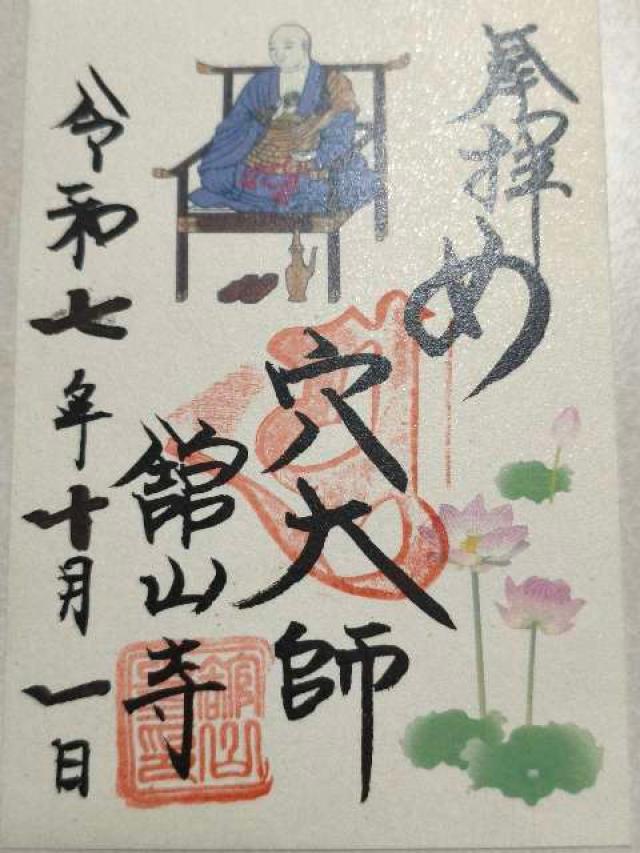 奉拝
め穴大師
舘山寺
令和七年十月一日